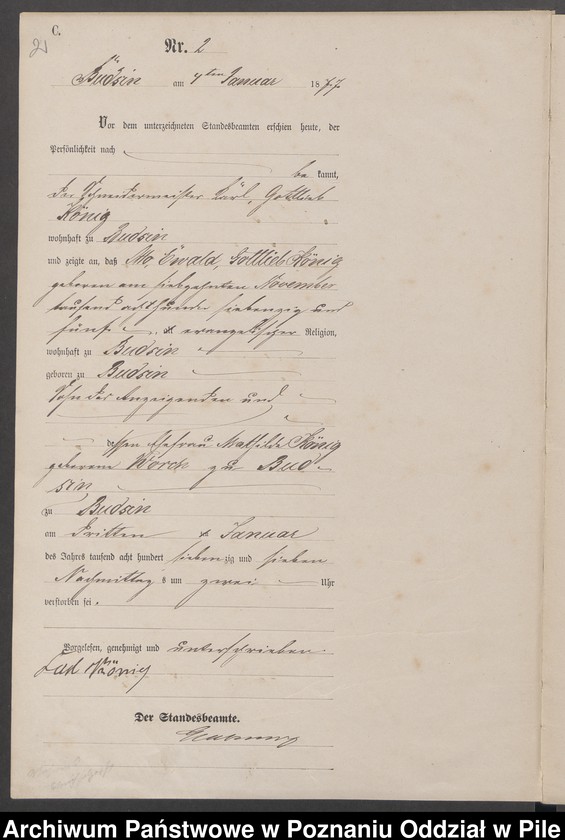 C.
Nr. 2
Budsin am 4ten Januar 1877
Vor dem unterzeichneten Standesbeamten erschien heute, der
Persönlichkeit nach
be kannt,
der Schneidermeister Carl, Gottlieb
König
wohnhaft zu Budsin
und zeigte an, daß Ewald, Gottlieb König
geboren am siebzehnten November
tausend achthundert siebenzig und
fünf evangelischer Religion,
wohnhaft zu Budsin
geboren zu Budsin
Sohn des Anzeigenden und
dessen Ehefrau Mathilde König
geborene Wörch zu Bud-
sin
zu Budsin
am dritten Januar
des Jahres tausend acht hundert siebenzig und sieben
Nachmittags um zwei Uhr
verstorben sei.
Vorgelesen, genehmigt und unterschrieben.
König
Der Standesbeamte.
Archiwum Państwowe w Poznaniu Oddział w Pile